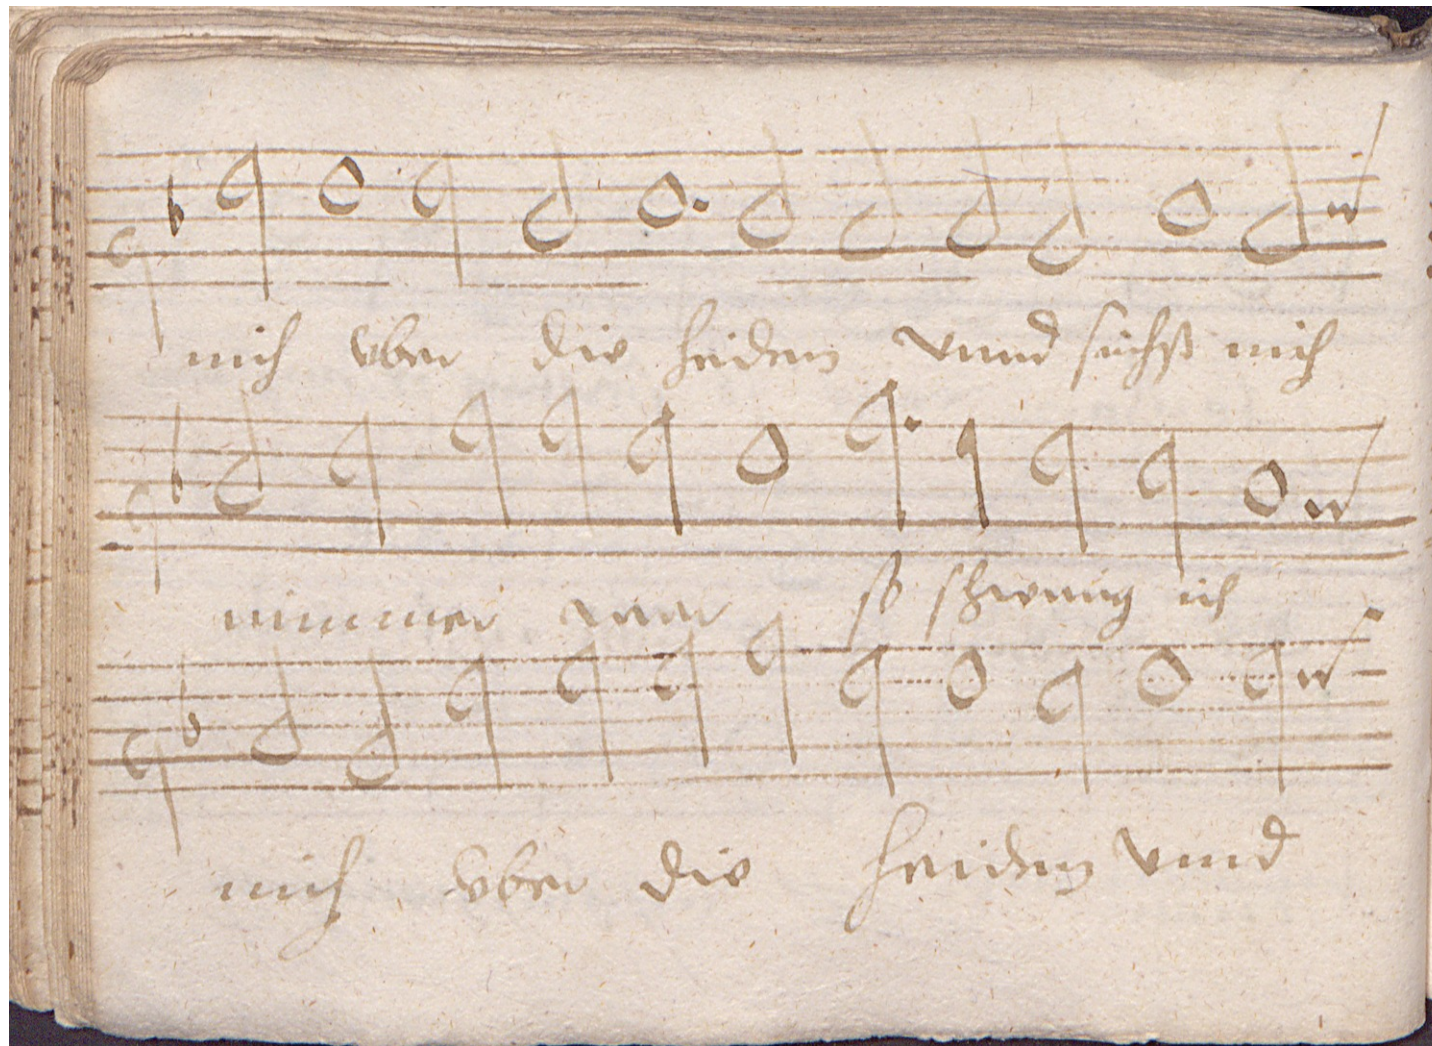 mich vber die heiden vnnd sichst mich
nimmer mer so schwing ich
mich vber die heiden vnnd